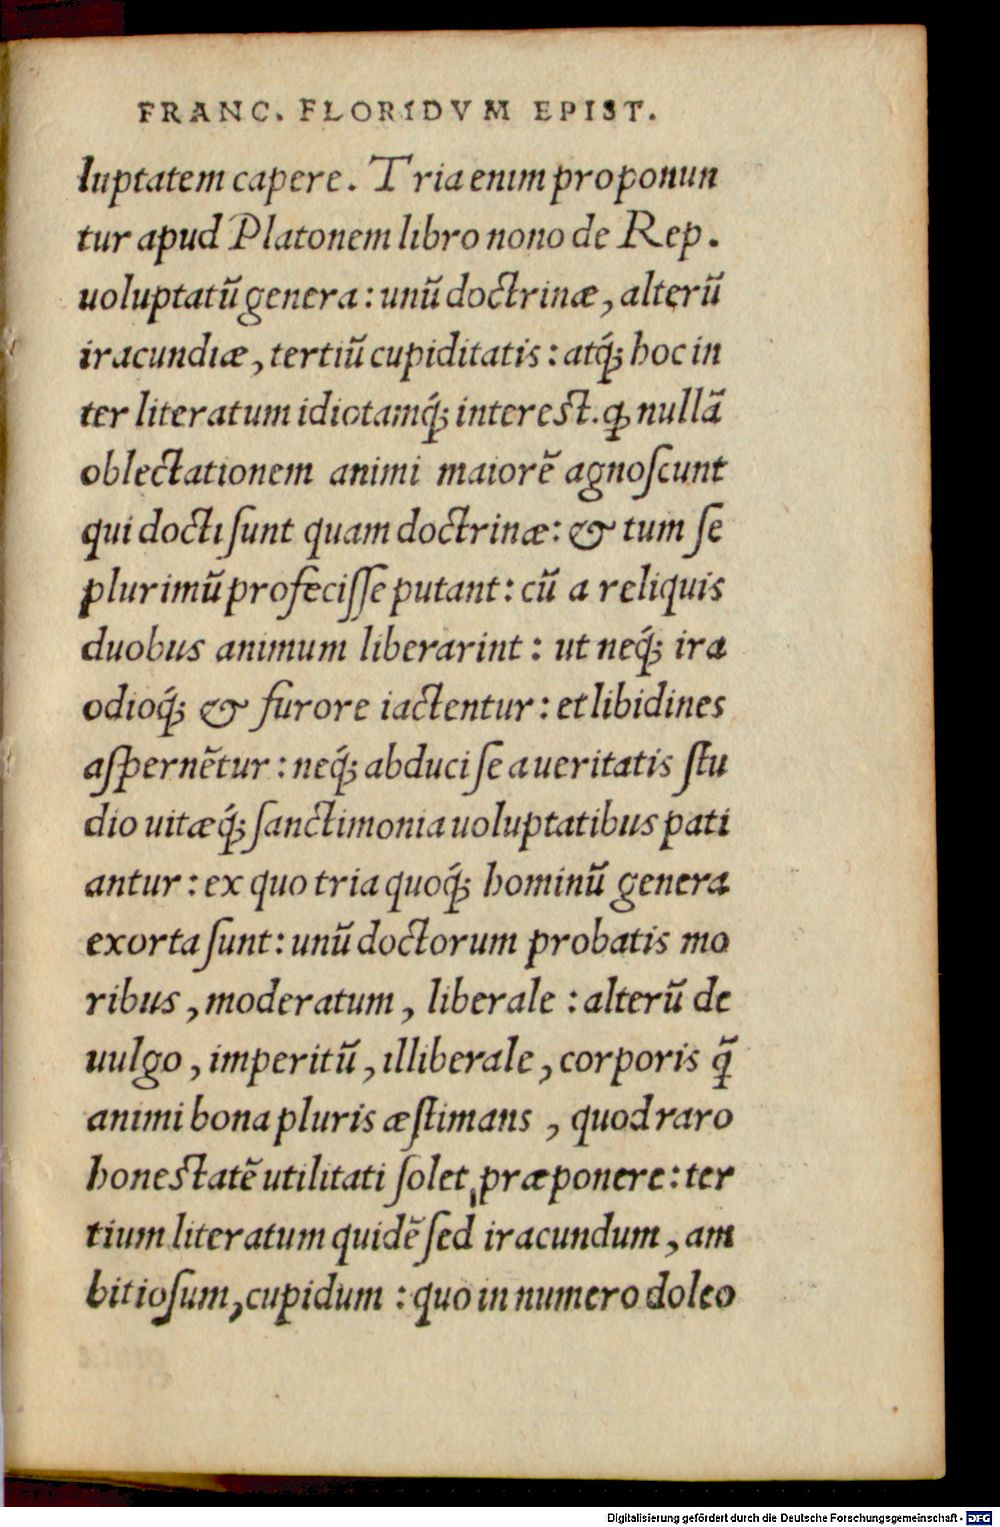 FRANC. FLORIDVM EPIST.
luptatem capere. Tria enim proponun
tur apud Platonem libro nono de Rep.
uoluptatũ genera: unũ doctrinæ, alterũ
iracundiæ, tertiũ cupiditatis: atq́; hoc in
ter literatum idiotamq́; interest. ꝙ nullã
oblectationem animi maiorẽ agnoſcunt
qui docti ſunt quam doctrinæ: & tum ſe
plurimũ profeciſſe putant: cũ a reliquis
duobus animum liberarint: ut neq́; ira
odioq́; & furore iactentur: et libidines
aſpernẽtur: neq́; abduci ſe a ueritatis ſtu
dio uitæq́; ſanctimonia uoluptatibus pati
antur: ex quo tria quoq́; hominũ genera
exorta ſunt: unũ doctorum probatis mo
ribus, moderatum, liberale: alterũ de
uulgo, imperitũ, illiberale, corporis q̃
animi bona pluris æſtimans, quod raro
honestatẽ utilitati ſolet præponere: ter
tium literatum quidẽ ſed iracundum, am
bitioſum, cupidum: quo in numero doleo
Digitalisierung gefördert durch die Deutsche Forschungsgemeinschaft - DFG